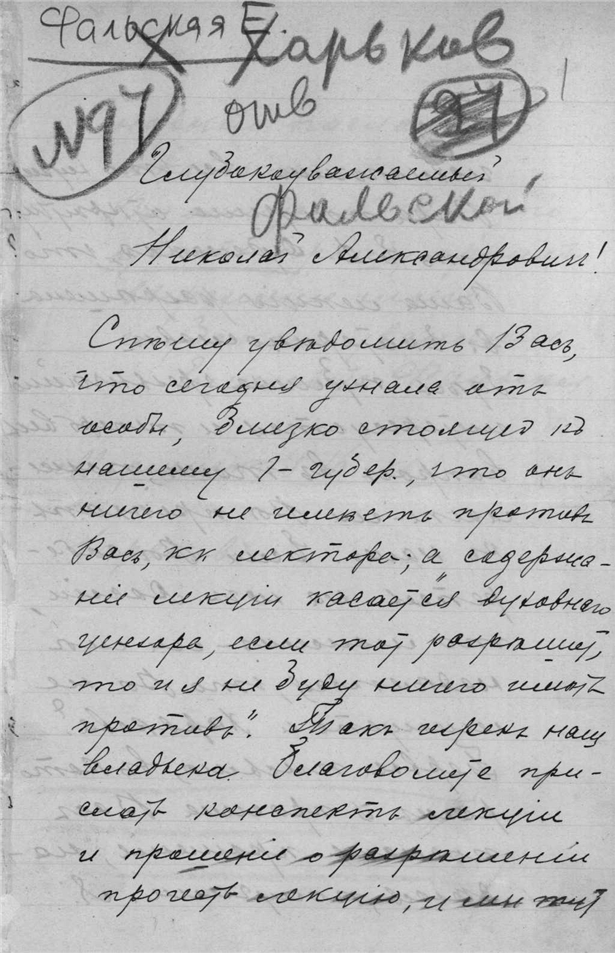 Фальская Е.
Харьков
№97
отв
97
Глубокоуважаемый
Фальской
Николай Александрович!
Спѣшу увѣдомить Васъ,
что сегодня узнала отъ
особы, близко стоящей къ
нашему Г-губер., что онъ
ничего не имѣетъ противъ
Васъ, кк лектора; а содержа-
ніе лекціи касается „духовнаго
цензора, если тот разрѣшит,
то и я не буду ничего имѣть
противъ". Такъ изрекъ наш
владыка. Благоволите при-
слать конспектъ лекціи
и прошеніе о разрѣшеніи
прочесть лекцію, и мы тут